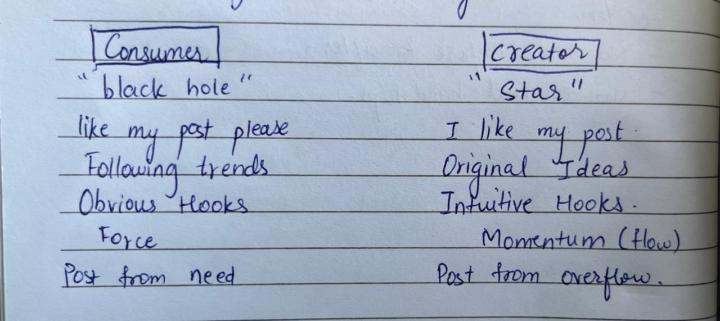 Consumer creator
"black hole" "Star"
like my post please I like my post.
Following trends Original Ideas
Obvious Hooks Intuitive Hooks.
Force Momentum (flow)
Post from need Post from overflow.